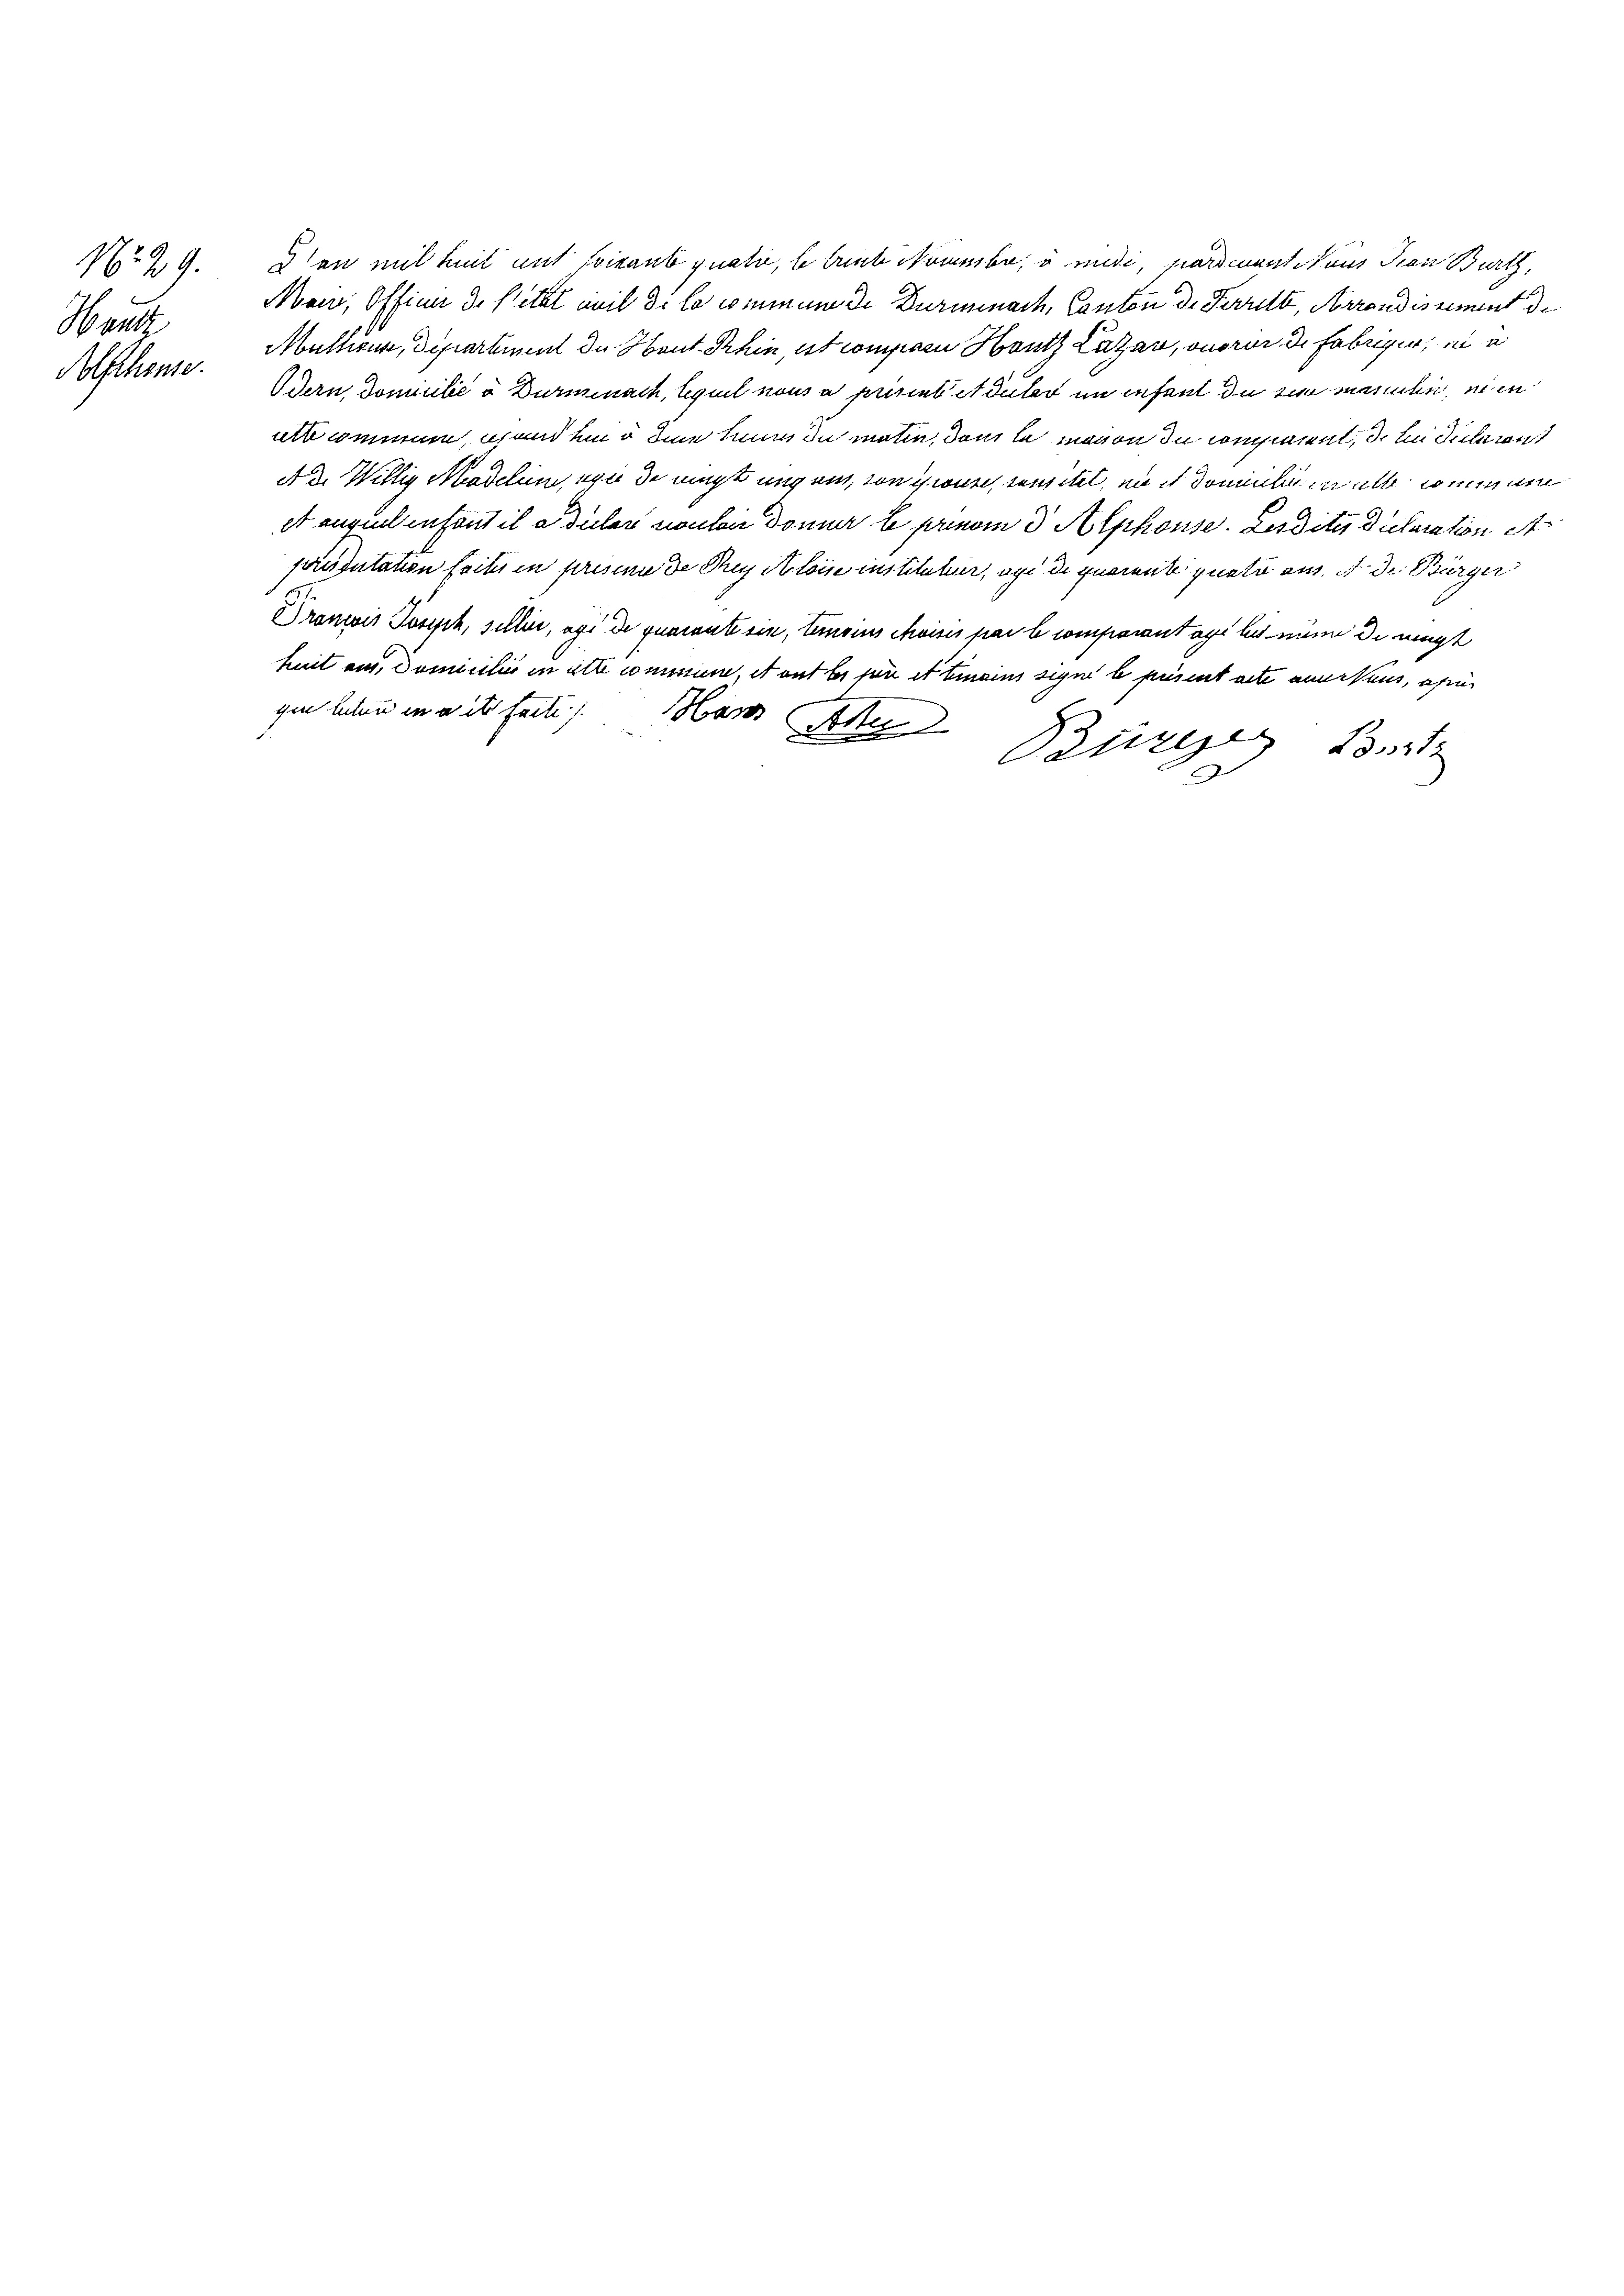 No. 29.
Hautz
Alphonse.
L'an mil huit cent soixante quatre, le trente Novembre, à midi, pardevant Nous Jean Burtz,
Maire, Officier de l'état civil de la commune de Durmenach, Canton de Ferrette, Arrondissement de
Mulhouse, département du Haut-Rhin, est comparu Hautz Lazare, ouvrier de fabrique, né à
Odern, domicilié à Durmenach, lequel nous a présenté et déclaré un enfant du sexe masculin, né en
cette commune, aujourd'hui à heures du matin, dans la maison du comparant, de lui déclarant
et de Willig Madeleine, agée de vingt cinq ans, son épouse, sans état, née et domiciliée en cette commune
et auquel enfant il a déclaré vouloir donner le prénom d'Alphonse. Lesdites déclaration et
présentation faites en présence de Rey Aloïse instituteur, agé de quarante quatre ans, et de Bürger
François Joseph, sellier, agé de quarante six, témoins choisis par le comparant agé lui-même de vingt
huit ans, domiciliés en cette commune, et ont les père et témoins signé le présent acte avec Nous, après
que lecture en a été faite /.
Bürger Burtz